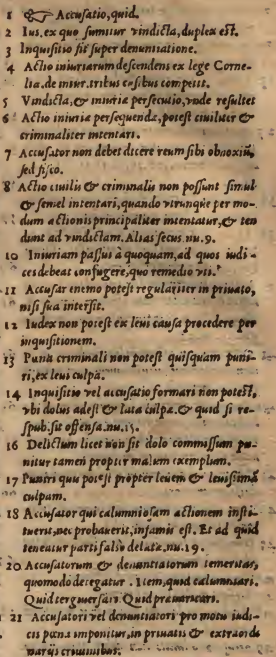 1 ☞ Accusatio, quid.
2 Ius, ex quo sumitur vindicta, duplex est.
3 Inquisitio fit super denuntiatione.
4 Actio iniuriarum descendens ex lege Corne-
lia, de iniur. tribus casibus competit.
5 Vindicta, & iniuriæ persecutio, vnde resultet
6 Actio iniuriæ persequendæ, potest ciuiliter &
criminaliter intentari.
7 Accusator non debet dicere reum sibi obnoxiũ,
sed fisco.
8 Actio ciuilis & criminalis non possunt simul
& semel intentari, quando vtrunque per mo-
dum actionis principaliter intentatur, & ten
dunt ad vindictam. Alias secus. nu. 9.
10 Iniuriam passus à quoquam, ad quos iudi-
ces debeat confugere, quo remedio vti.
11 Accusar enemo potest regulariter in priuato,
nisi sua intersit.
12 Iudex non potest ex leui causa procedere per
inquisitionem.
13 Pœna criminali non potest quisquam puni-
ri, ex leui culpa.
14 Inquisitio vel accusatio formari non potest,
vbi dolus adest & lata culpa. & quid si re-
spub. sit offensa. nu. 15.
16 Delictum licet non sit dolo commissum pu-
nitur tamen propter malum exemplum.
17 Puniri quu potest propter leuem & leuissimã
culpam.
18 Accusator qui calumniosam actionem insti-
tuerit, nec probauerit, infamis est. Et ad quid
teneatur parti falso delatæ. nu. 19.
20 Accusatorum & denuntiatorum temeritas,
quomodo detegatur. Item, quid calumniari.
Quid tergiuersari. Quid præuaricari.
21 Accusatori vel denuntiatori pro motu iudi-
cis pœna imponitur, in priuatis & extraordi
narijs criminibus.